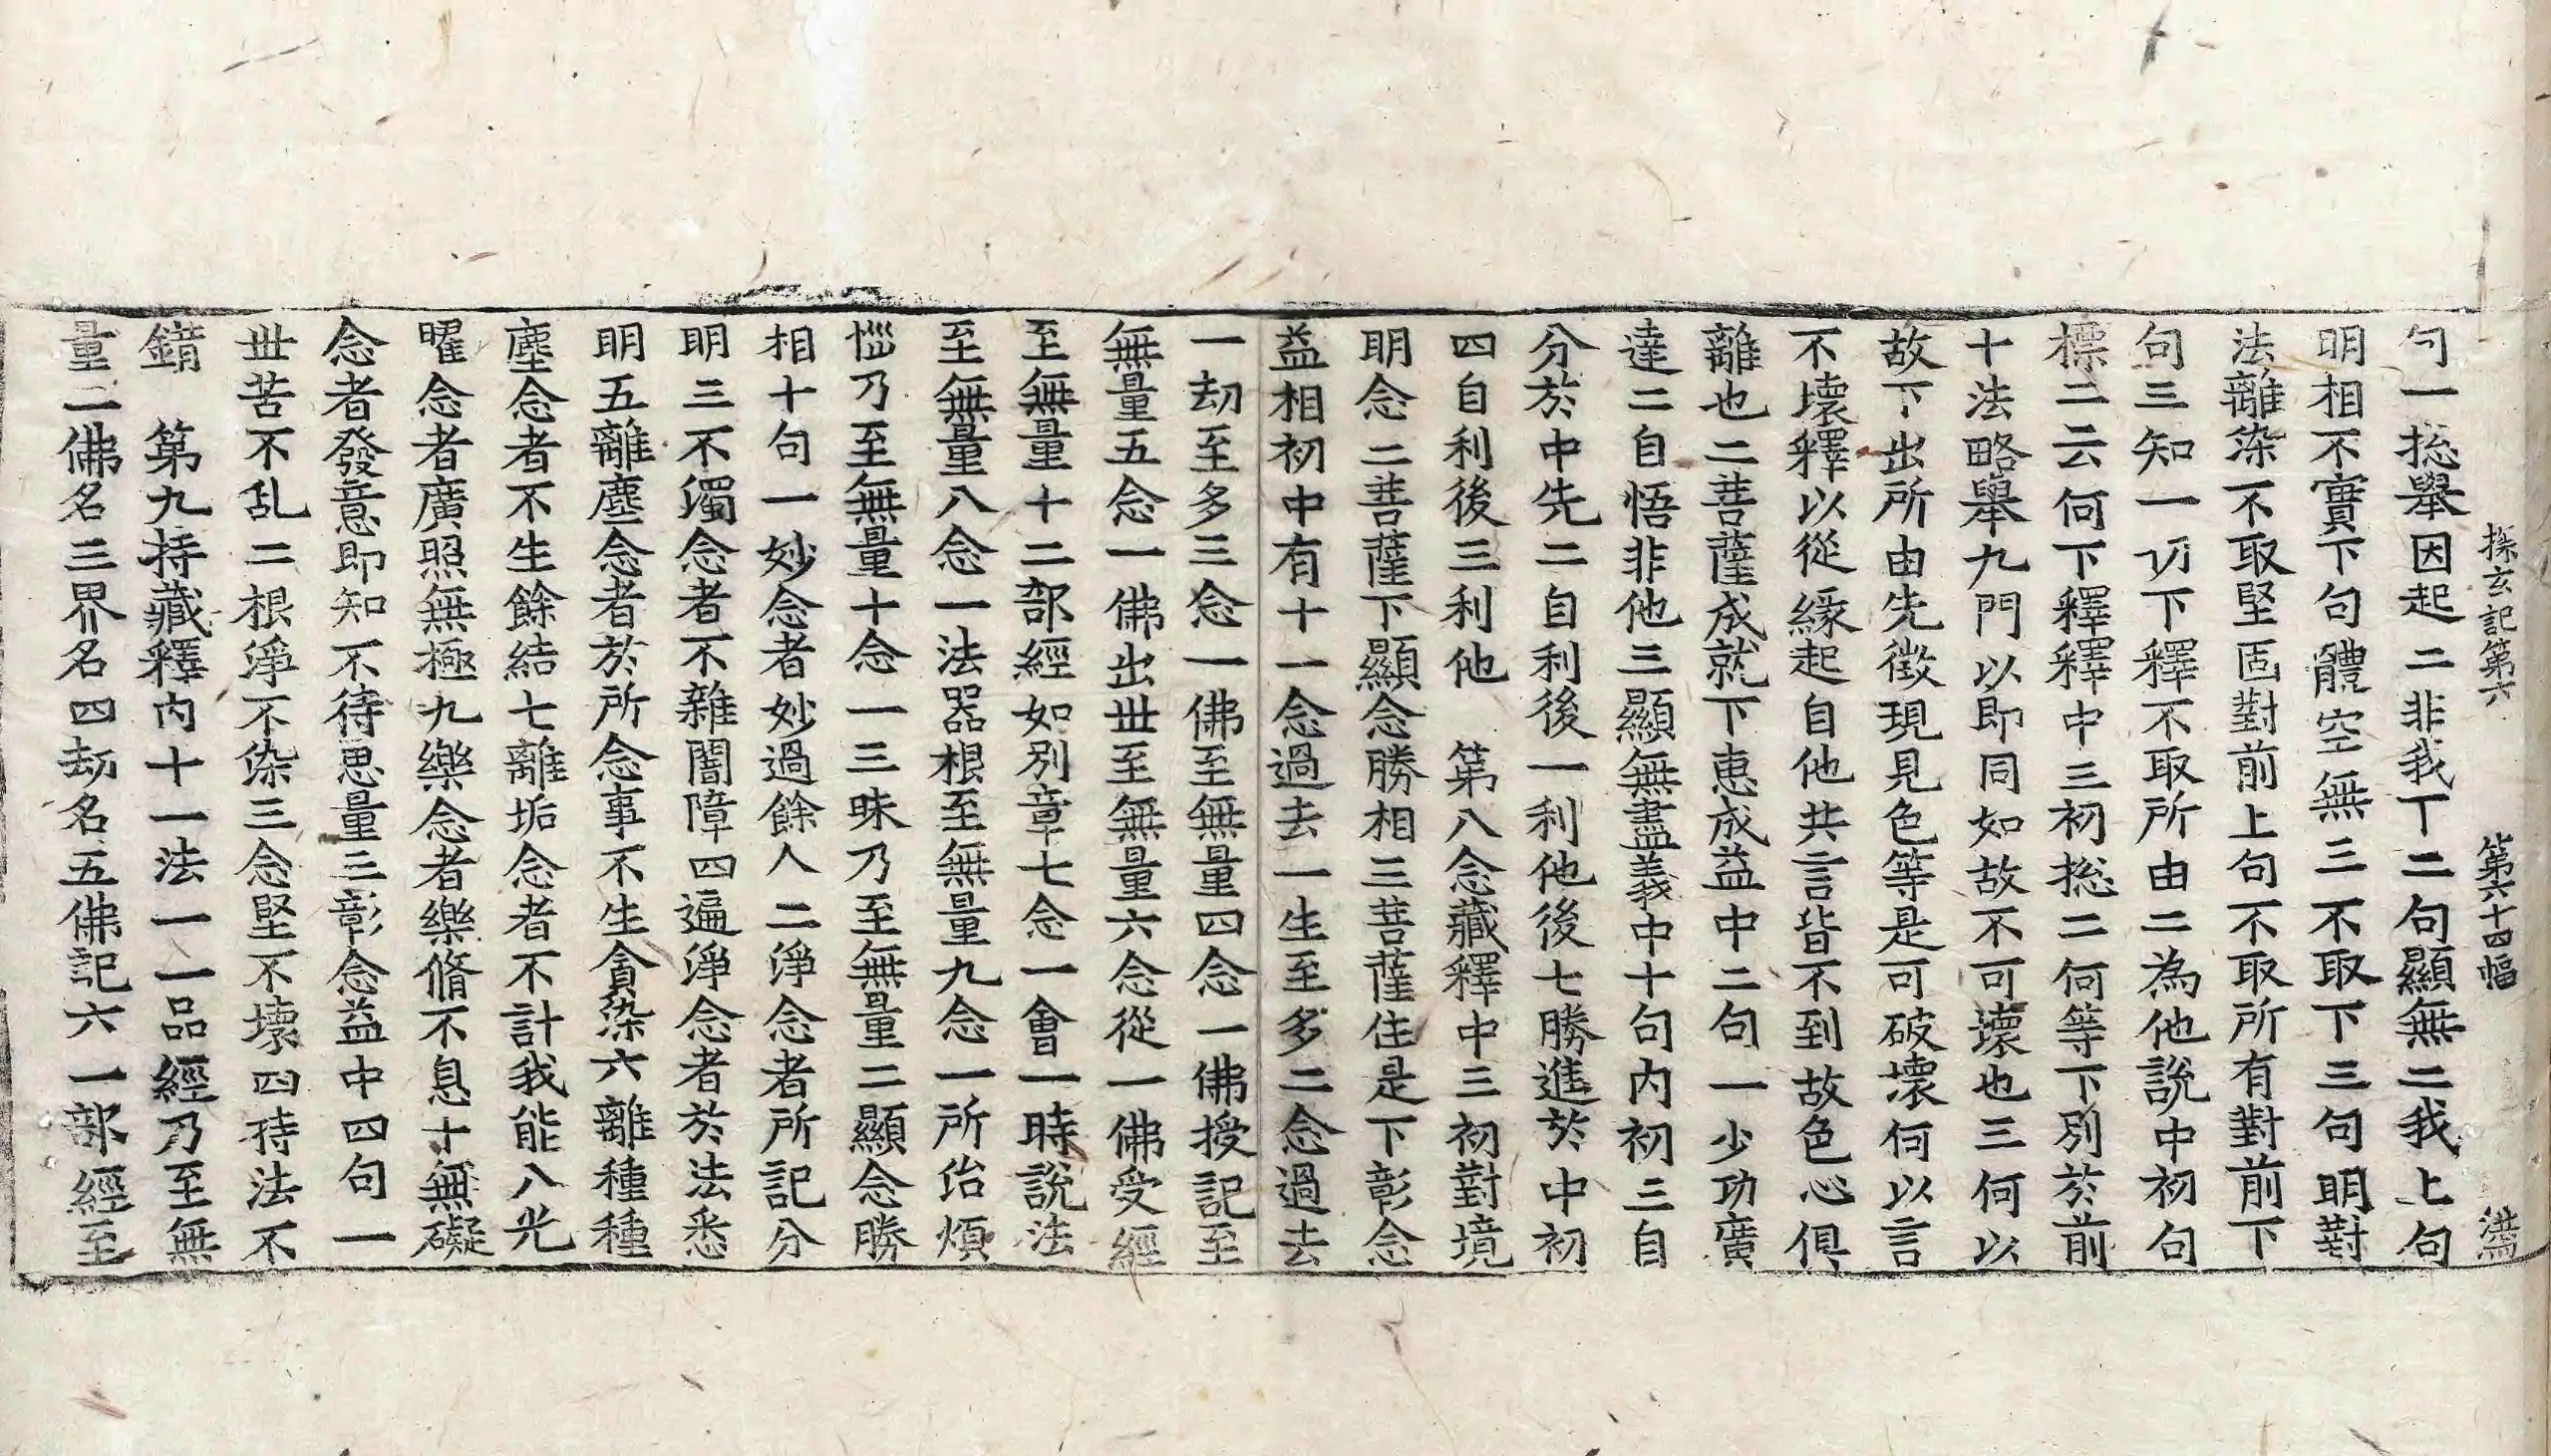 探玄記第六　第六十四幅　洪
句一捴舉因起二非我下二句顯無二我上句
明相不實下句體空無三不取下三句明對
法離染不取堅固對前上句不取所有對前下
句三知一切下釋不取所由二為他說中初句
標二云何下釋釋中三初捴二何等下別於前
十法略舉九門以即同如故不可壞也三何以
故下出所由先徵現見色等是可破壞何以言
不壞釋以從緣起自他共言皆不到故色心俱
離也二菩薩成就下惠成益中二句一少功廣
達二自悟非他三顯無盡義中十句内初三自
分於中先二自利後一利他後七勝進於中初
四自利後三利他　第八念藏釋中三初對境
明念二菩薩下顯念勝相三菩薩住是下彰念
益相初中有十一念過去一生至多二念過去
一劫至多三念一佛至無量四念一佛授記至
無量五念一佛出世至無量六念從一佛受經
至無量十二部經如別章七念一會一時說法
至無量八念一法器根至無量九念一所治煩
惱乃至無量十念一三昧乃至無量二顯念勝
相十句一妙念者妙過餘人二淨念者所記分
明三不濁念者不雜闇障四遍淨念者於法悉
明五離塵念者於所念事不生貪染六離種種
塵念者不生餘結七離垢念者不計我能八光
曜念者廣照無極九樂念者樂脩不息十無礙
念者發意即知不待思量三彰念益中四句一
世苦不乱二根淨不染三念堅不壞四待法不
錯　第九持藏釋内十一法一一品經乃至無
量二佛名三界名四劫名五佛記六一部經至